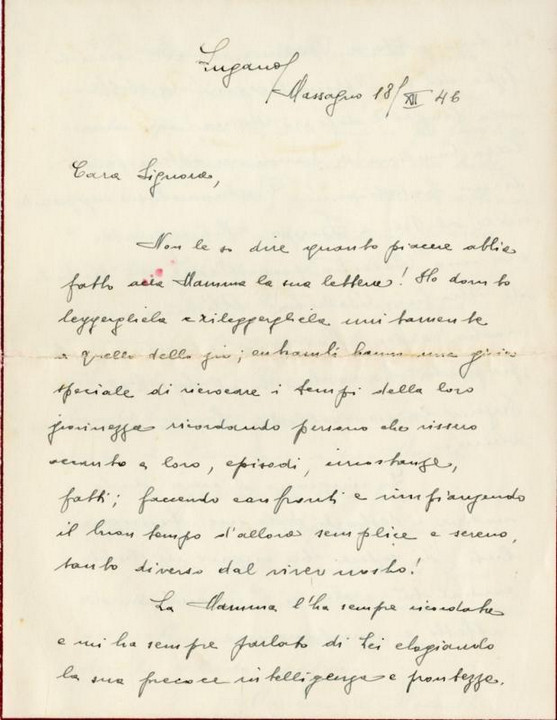 Lugano/
Massagno 18/XII 46
Cara Signora,
Non le so dire quanto piacere abbia
fatto alla Mamma la sua lettera! Ho dovuto
leggergliela e rileggergliela unitamente
a quella dello zio; entrambi hanno una gioia
speciale di rievocare i tempi della loro
giovinezza ricordando persone che vissero
accanto a loro, episodi, circostanze,
fatti; facendo confronti e rimpiangendo
il buon tempo d'allora semplice e sereno,
tanto diverso dal viver nostro!
La Mamma l'ha sempre ricordata
e mi ha sempre parlato di Lei elogiando
la sua precoce intelligenza e prontezza.